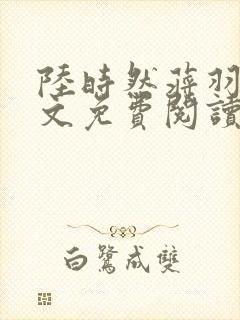 陸時然蔣羽
文免費閱讀
白鷺成雙